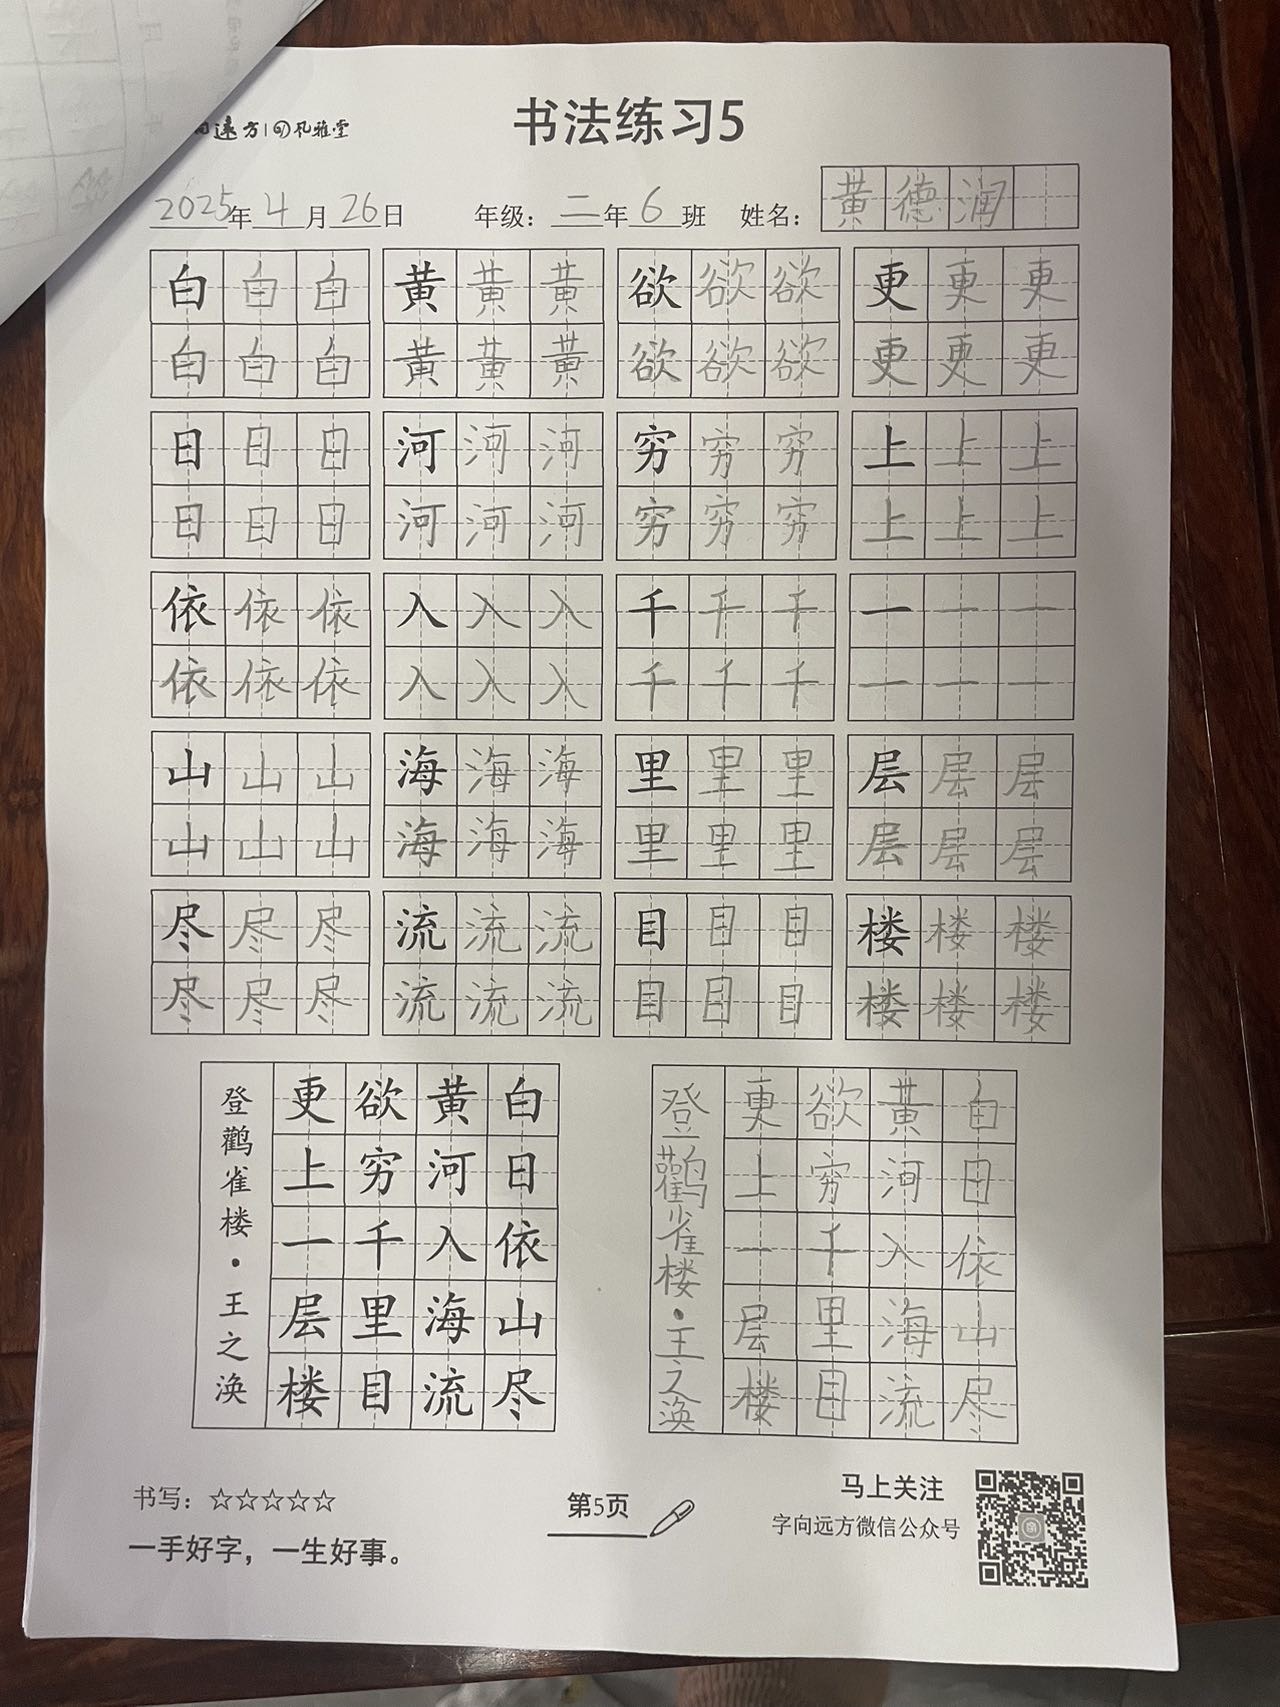 远方|风雅堂
书法练习5
2025年4月26日 年级：二年6班 姓名：黄德润
白白白 黄黄黄 欲欲欲 更更更
白白白 黄黄黄 欲欲欲 更更更
日日日 河河河 穷穷穷 上上上
日日日 河河河 穷穷穷 上上上
依依依 入入入 千千千 一一一
依依依 入入入 千千千 一一一
山山山 海海海 里里里 层层层
山山山 海海海 里里里 层层层
尽尽尽 流流流 目目目 楼楼楼
尽尽尽 流流流 目目目 楼楼楼
白日依山尽
黄河入海流
欲穷千里目
更上一层楼
登鹳雀楼·王之涣
白日依山尽
黄河入海流
欲穷千里目
更上一层楼
登鹳雀楼·王之涣
书写：☆☆☆☆☆
一手好字，一生好事。
第5页
马上关注
字向远方微信公众号